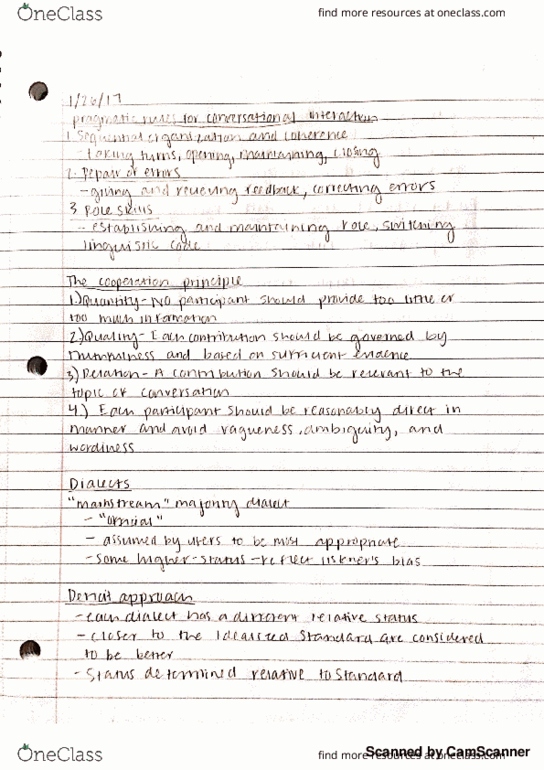 OneClass
find more resources at oneclass.com
1/26/17
pragmatic rules for conversational interaction
1. Sequential organization and coherence
- taking turns, opening, maintaining, closing
2. Repair of errors
- giving and recieving feedback, correcting errors
3 Role skills
- establishing and maintaining role, switching
linguistic code
The cooperation principle
1.) Quantity - No participant should provide too little or
too much information
2.) Quality - Each contribution should be governed by
truthfulness and based on sufficient evidence
3) Relation - A contribution should be relevant to the
topic of conversation
4.) Each participant should be reasonably direct in
manner and avoid vagueness, ambiguity, and
wordiness
Dialects
"mainstream" majority dialect
- "official"
- assumed by users to be most appropriate
- some higher-status - reflect listner's bias
Deficit approach
- each dialect has a different relative status
- closer to the idealized standard are considered
to be better
- status determined relative to standard
OneClass
find more resources at oneclass.com
Scanned by CamScanner